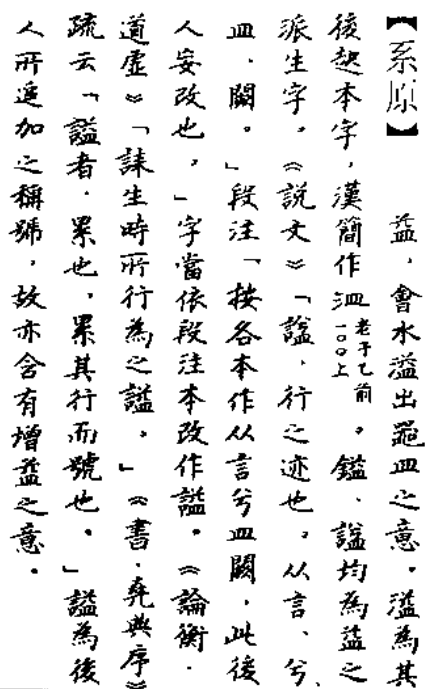 【系原】　益，會水溢出器皿之意。溢為其
後起本字，漢簡作泴老子乙前一〇〇上。鎰、謚均為益之
派生字。《說文》「諡，行之迹也。从言、兮、
皿．闕。」段注「按各本作从言兮皿闕，此後
人妄改也。」字當依段注本改作謚。《論衡．
道虛》「誄生時所行為之謚。」《書．堯典序》
疏云「謚者．累也，累其行而號也。」謚為後
人所追加之稱號，故亦含有增益之意。